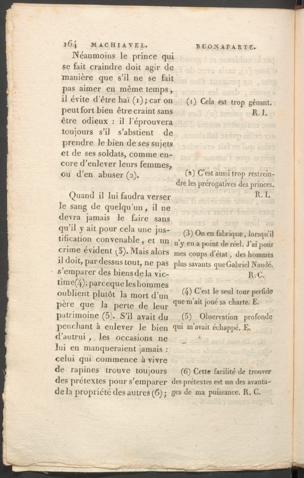 164 MACHIAVEL.
Néaumoins le prince qui
se fait craindre doit agir de
manière que s'il ne se fait
pas aimer en même temps,
il évite d'être haï (1); car on
peut fort bien être craint sans
être odieux : il l'éprouvera
toujours s'il s'abstient de
prendre le bien de ses sujets
et de ses soldats, comme en-
core d'enlever leurs femmes,
ou d'en abuser (2).
Quand il lui faudra verser
le sang de quelqu'un, il ne
devra jamais le faire sans
qu'il y ait pour cela une jus-
tification convenable, et un
crime évident (3). Mais alors
il doit, par dessus tout, ne pas
s'emparer des biens de la vic-
time(4); parce que les hommes
oublient plutôt la mort d'un
père que la perte de leur
patrimoine (5). S'il avait du
penchant à enlever le bien
d'autrui, les occasions ne
lui en manqueraient jamais :
celui qui commence à vivre
de rapines trouve toujours
des prétextes pour s'emparer
de la propriété des autres (6);
BUONAPARTE.
(1) Cela est trop gênant.
R. I.
(2) C'est aussi trop restrein-
dre les prérogatives des princes.
R. I.
(3) On en fabrique, lorsqu'il
n'y en a point de réel. J'ai pour
mes coups d'état, des hommes
plus savants que Gabriel Naudé.
R. C.
(4) C'est le seul tour perfide
que m'ait joué sa charte. E.
(5) Observation profonde
qui m'avait échappé. E.
(6) Cette facilité de trouver
des prétextes est un des avanta-
ges de ma puissance. R. C.